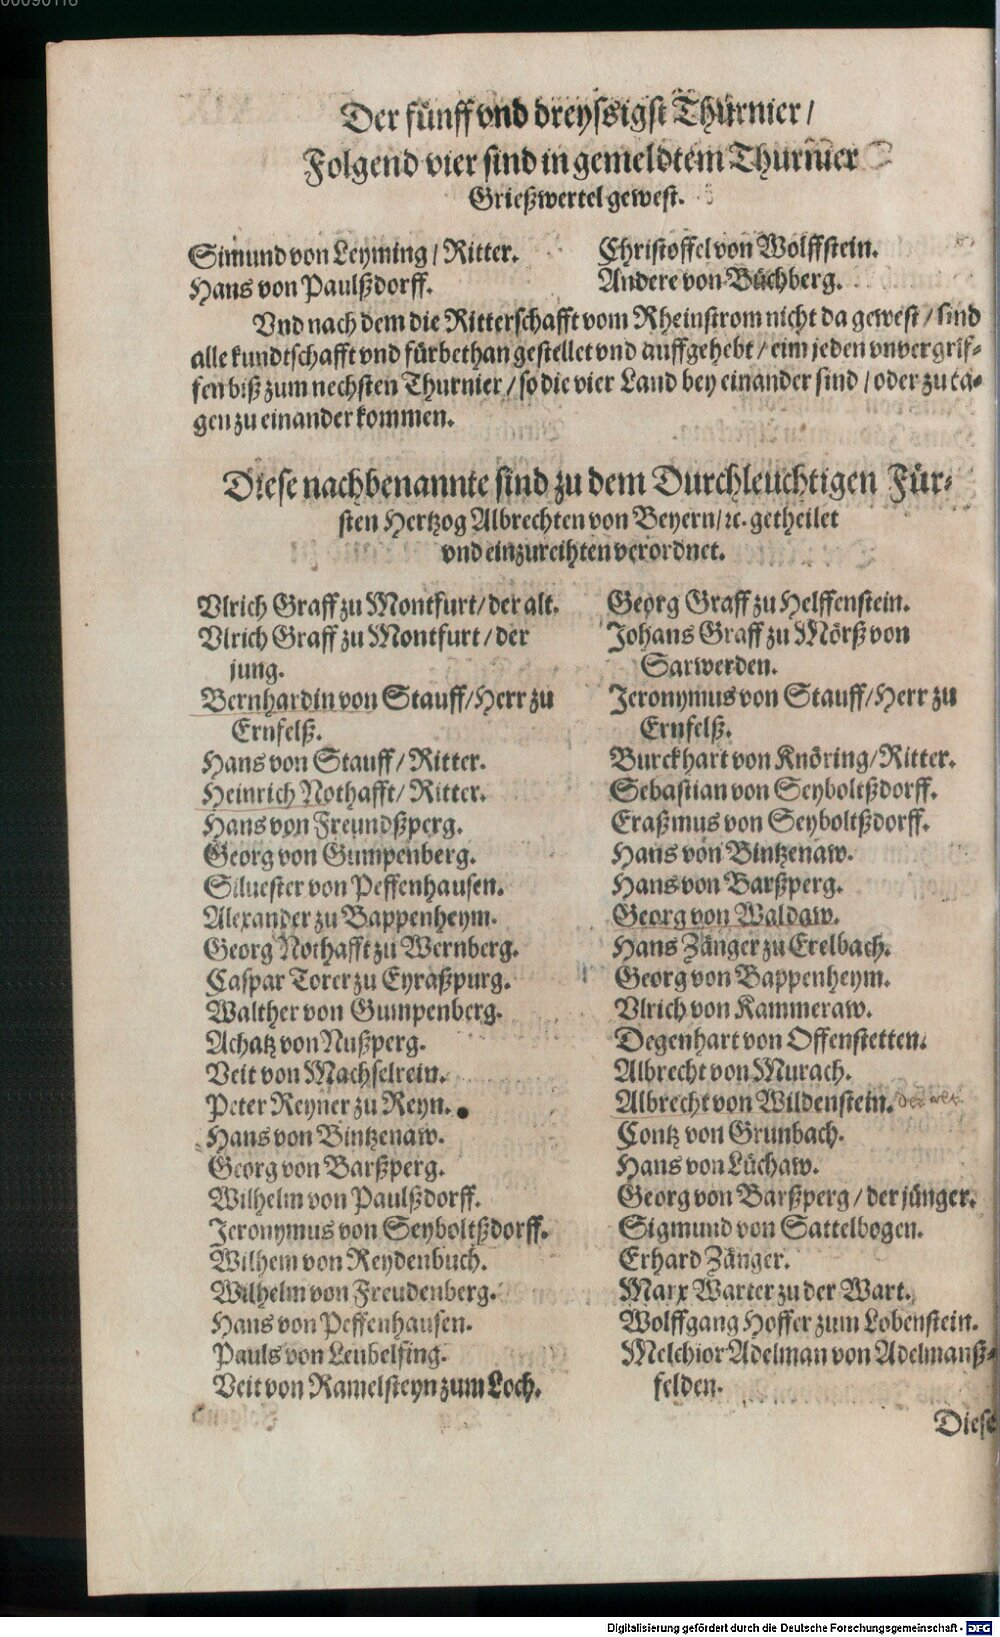 Der fünff vnd dreyssigst Thürnier /
Folgend vier sind in gemeldtem Thurnier
Grießwertel gewest.
Simund von Leyming / Ritter.
Hans von Paulßdorff.
Christoffel von Wolffstein.
Andere von Büchberg.
Vnd nach dem die Ritterschafft vom Rheinstrom nicht da gewest / sind
alle kundtschafft vnd fürbethan gestellet vnd auffgehebt / eim jeden vnvergrif-
fen biß zum nechsten Thurnier / so die vier Land bey einander sind / oder zu ta-
gen zu einander kommen.
Diese nachbenannte sind zu dem Durchleuchtigen Für-
sten Hertzog Albrechten von Beyern / ꝛc. getheilet
vnd einzureihten verordnet.
Vlrich Graff zu Montfurt / der alt.
Vlrich Graff zu Montfurt / der
jung.
Bernhardin von Stauff / Herr zu
Ernfelß.
Hans von Stauff / Ritter.
Heinrich Nothafft / Ritter.
Hans von Freundßperg.
Georg von Gumpenberg.
Siluester von Peffenhausen.
Alexander zu Bappenheym.
Georg Nothafft zu Wernberg.
Caspar Torer zu Eyraßpurg.
Walther von Gumpenberg.
Achatz von Nußperg.
Veit von Machselrein.
Peter Reyner zu Reyn.
Hans von Bintzenaw.
Georg von Barßperg.
Wilhelm von Paulßdorff.
Jeronymus von Seyboltßdorff.
Wilhem von Reydenbuch.
Wilhelm von Freudenberg.
Hans von Peffenhausen.
Pauls von Leubelfing.
Veit von Ramelsteyn zum Loch.
Georg Graff zu Helffenstein.
Johans Graff zu Mörß von
Sarwerden.
Jeronymus von Stauff / Herr zu
Ernfelß.
Burckhart von Knöring / Ritter.
Sebastian von Seyboltßdorff.
Eraßmus von Seyboltßdorff.
Hans von Bintzenaw.
Hans von Barßperg.
Georg von Waldaw.
Hans Zänger zu Erelbach.
Georg von Bappenheym.
Vlrich von Kammeraw.
Degenhart von Offenstetten.
Albrecht von Murach.
Albrecht von Wildenstein. der
Contz von Grunbach.
Hans von Lüchaw.
Georg von Barßperg / der jünger.
Sigmund von Sattelbogen.
Erhard Zänger.
Marx Warter zu der Wart.
Wolffgang Hoffer zum Lobenstein.
Melchior Adelman von Adelmanß-
felden.
Diese
Digitalisierung gefördert durch die Deutsche Forschungsgemeinschaft - DFG